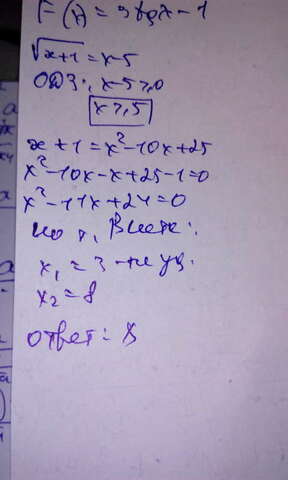 F(x) = 3tgx - 1
√x+1 = x-5
ОДЗ: x-5≥0
x≥5
x+1 = x²-10x+25
x²-10x-x+25-1=0
x²-11x+24=0
по т. Виета:
x₁ = 3 - не уд.
x₂ = 8
ответ: 8